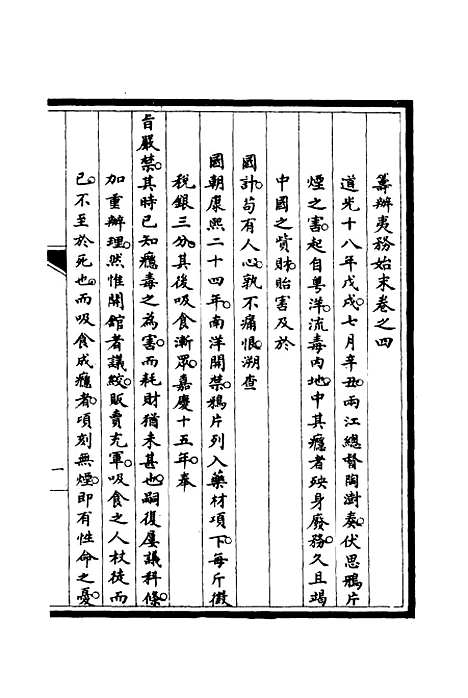 籌辦夷務始末卷之四
道光十八年戊戌。七月辛丑。兩江總督陶澍奏。伏思鴉片
煙之害。起自粵洋。流毒內地。中其癮者。殃身廢務。久且竭
中國之貲財。貽害及於
國計。苟有人心。孰不痛恨。溯查
國朝康熙二十四年。南洋開禁。鴉片列入藥材項下。每斤徵
稅銀三分。其後吸食漸眾。嘉慶十五年。奉
旨嚴禁。其時已知癮毒之為害。而耗財猶未甚也。嗣復屢議科條。
加重辦理。然惟開館者議絞。販賣充軍。吸食之人杖徒而
已。不至於死也。而吸食成癮者。頃刻無煙。即有性命之憂。
一